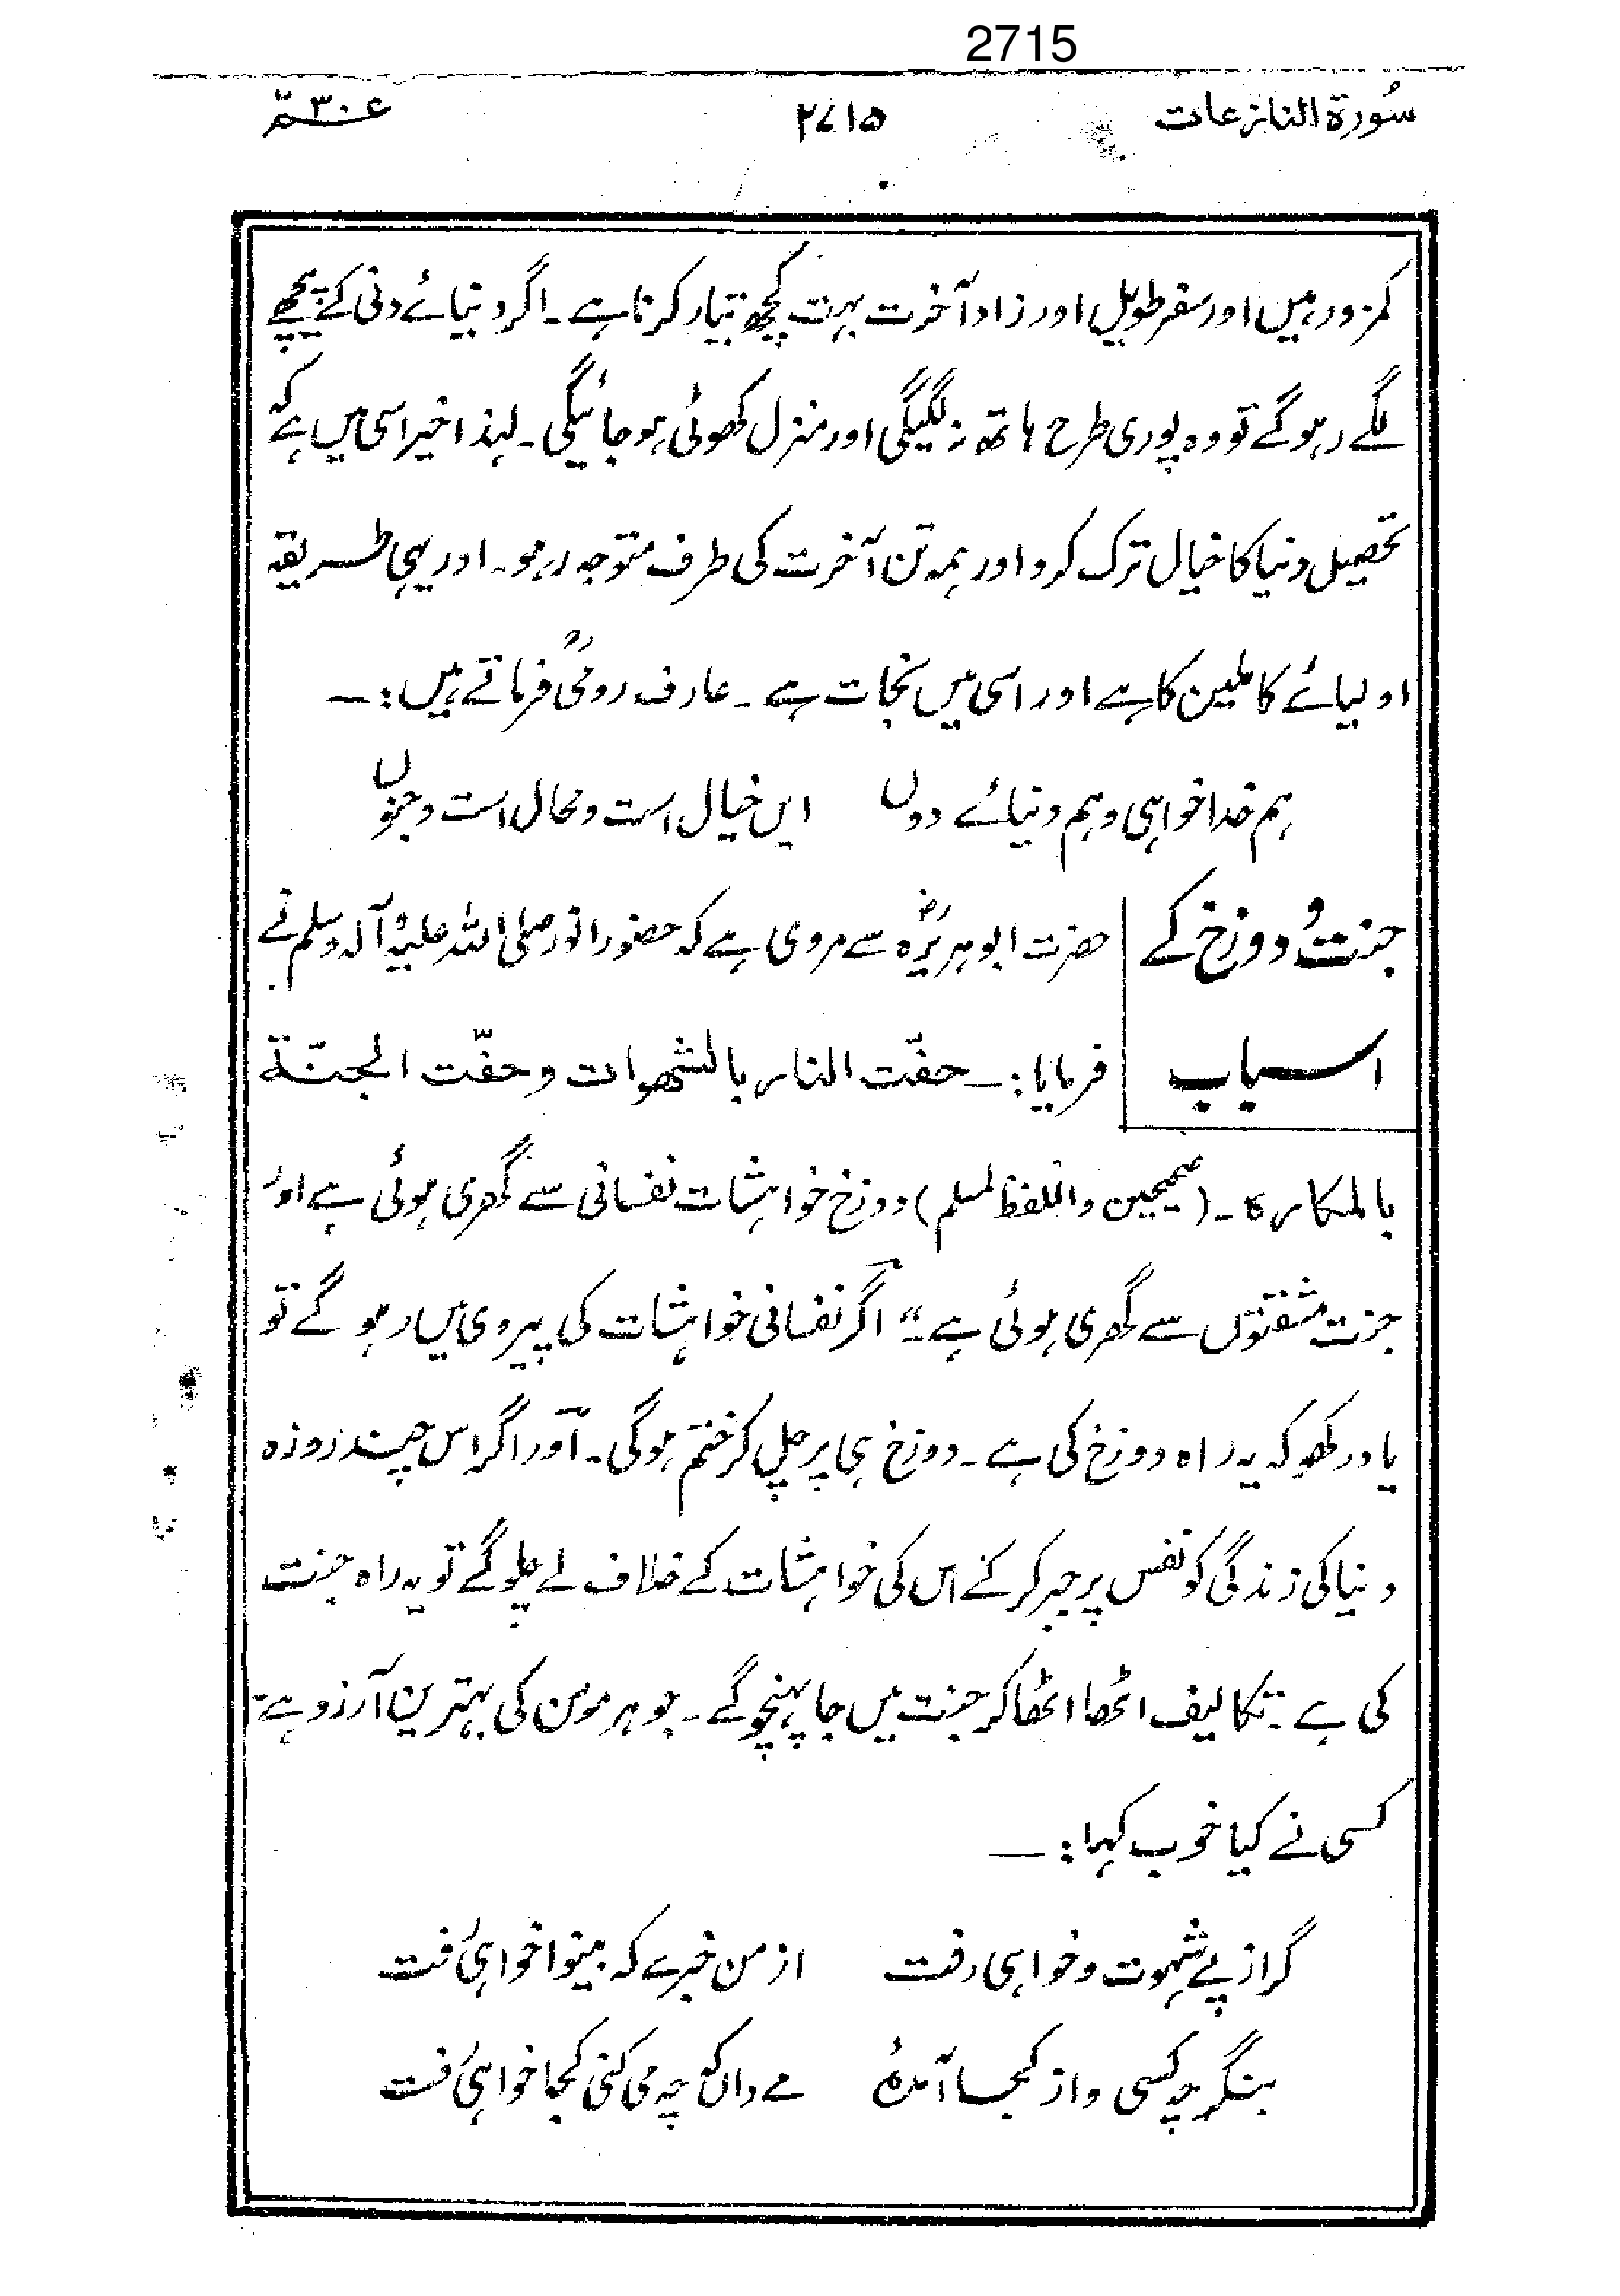 2715
سُورۃ النازعات ۲۷۱۵ عم ۳۰
کمزور ہیں اور سفر طویل اور زاد آخرت بہت کچھ تیار کرنا ہے۔ اگر دنیائے دنی کے پیچھے
لگے رہو گے تو وہ پوری طرح ہاتھ نہ لگیگی اور منزل کھوئی ہو جائیگی۔ لہٰذا خیر اسی میں ہے کہ
تحصیل دنیا کا خیال ترک کرو اور ہمہ تن آخرت کی طرف متوجہ رہو۔ اور یہی طریقہ
اولیائے کاملین کا ہے اور اسی میں نجات ہے۔ عارف رومیؒ فرماتے ہیں:۔
ہم خدا خواہی و ہم دنیائے دوں ایں خیال است و محال است و جنوں
جنت و دوزخ کے حضرت ابو ہریرہؓ سے مروی ہے کہ حضور انور صلی اللہ علیہ و آلہ وسلم نے
اسباب فرمایا:۔ حفّت النار بالشھوات وحفّت الجنّۃ
بالمکارہ۔ (صحیحین واللفظ لمسلم) دوزخ خواہشات نفسانی سے گھری ہوئی ہے اور
جنت مشقتوں سے گھری ہوئی ہے۔" اگر نفسانی خواہشات کی پیروی میں رہو گے تو
یاد رکھو کہ یہ راہ دوزخ کی ہے۔ دوزخ ہی پر چل کر ختم ہو گی۔ اور اگر اس چند روزہ
دنیا کی زندگی کو نفس پر جبر کر کے اس کی خواہشات کے خلاف لے چلو گے تو یہ راہ جنت
کی ہے۔ تکالیف اٹھا اٹھا کر جنت میں جا پہنچو گے۔ جو ہر مومن کی بہترین آرزو ہے۔
کسی نے کیا خوب کہا:۔
گر از پے شہوت و خواہی رفت از من خبرے کہ بینوا خواہی رفت
بنگر چہ کسی و از کجا آمدۂ مے داں کہ چہ می کنی کجا خواہی رفت